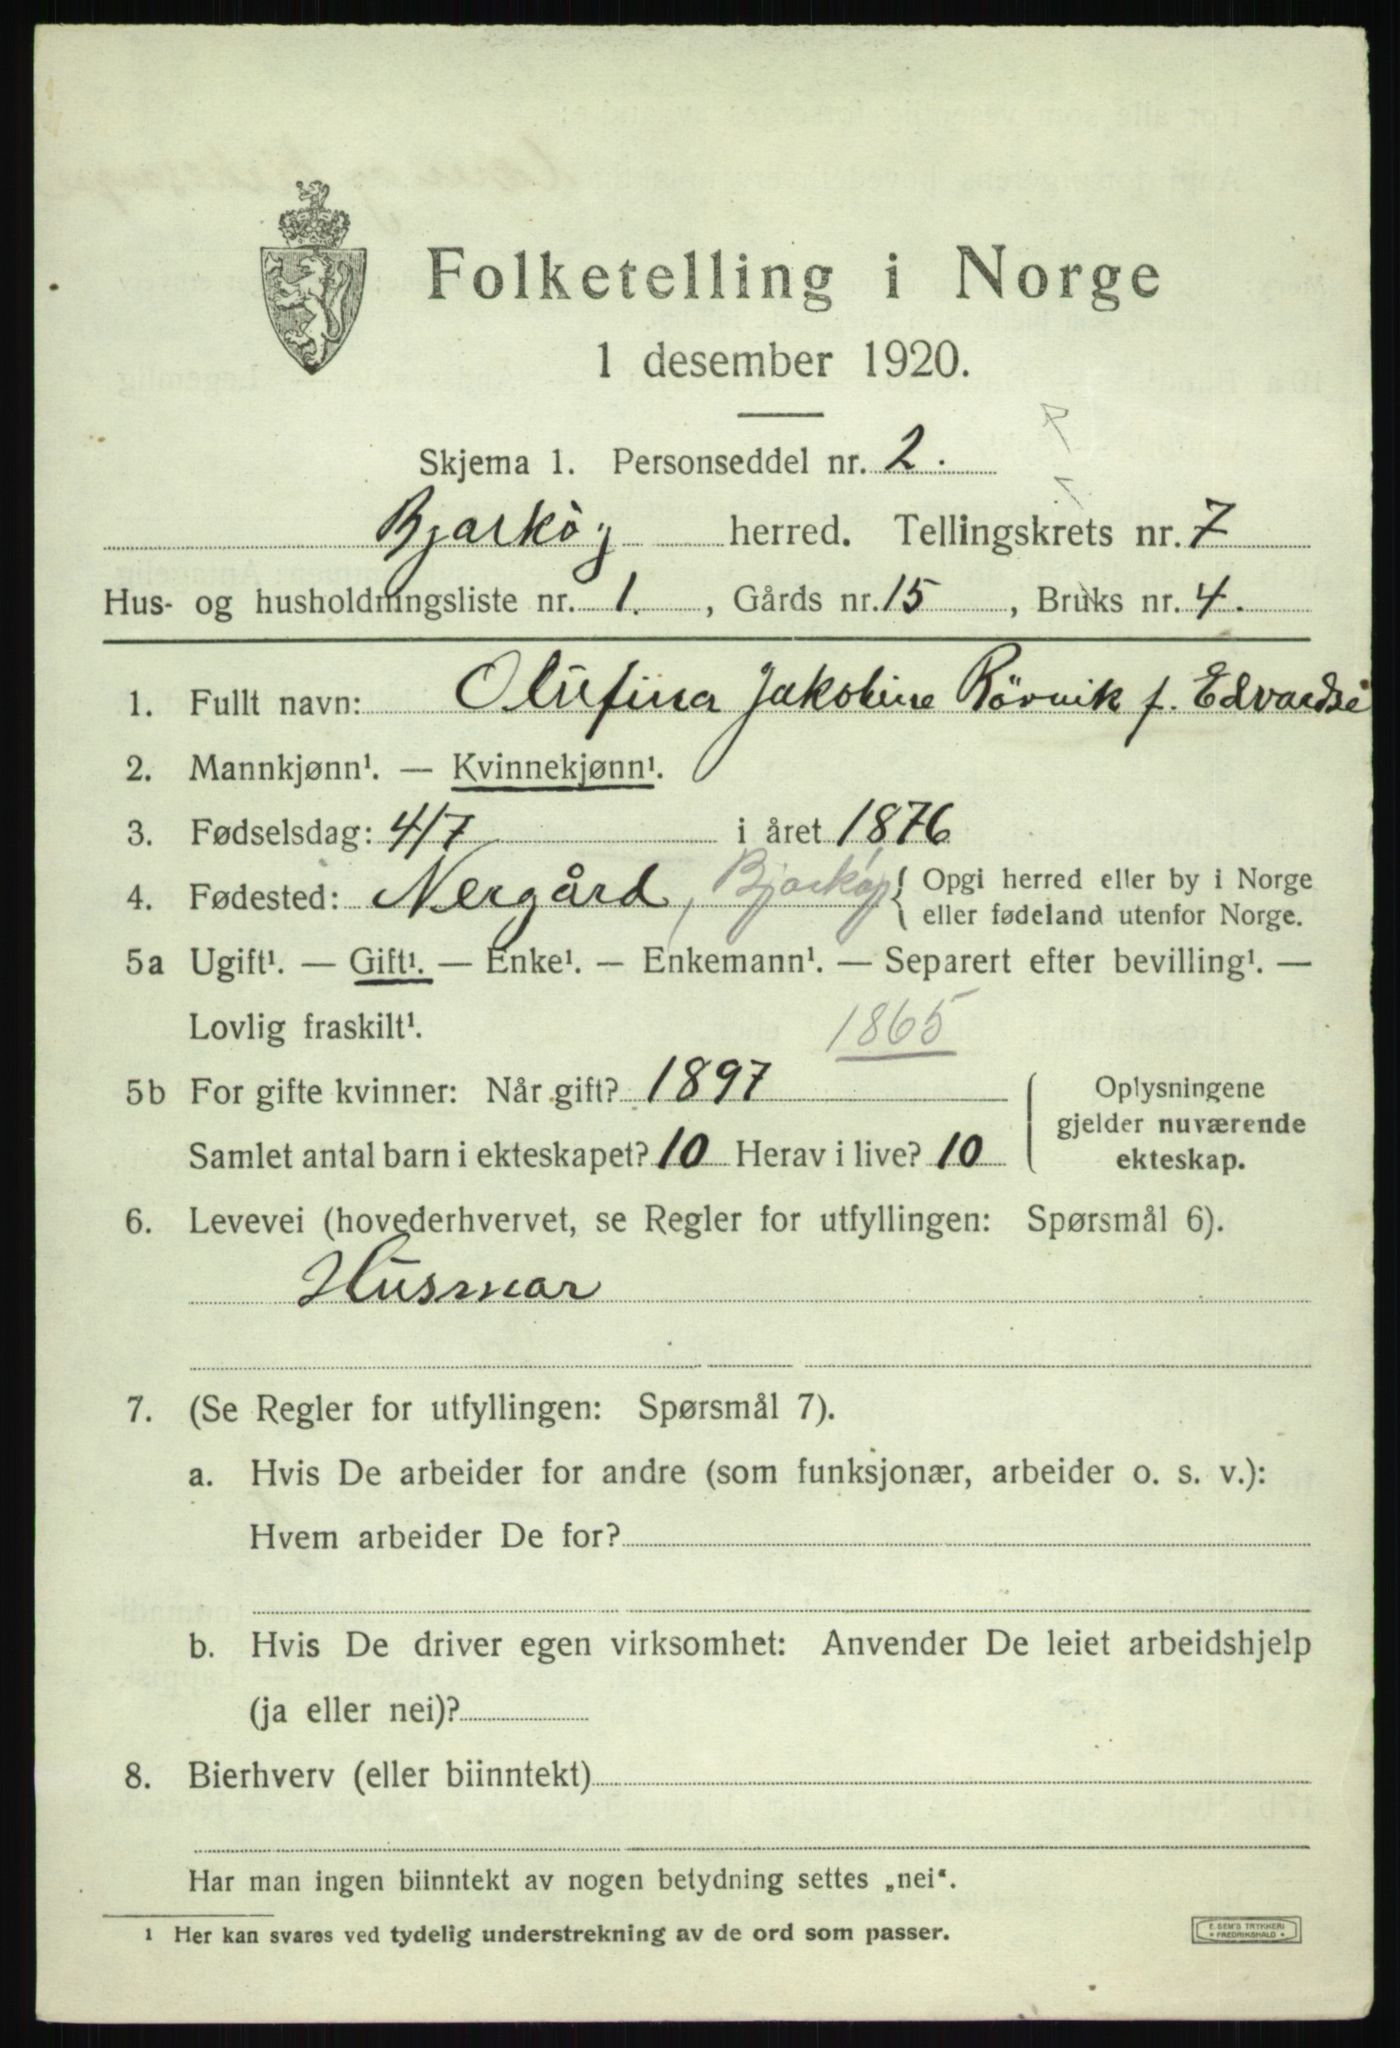 Folketelling i Norge
1 desember 1920.
Skjema 1. Personseddel nr. 2.
Bjarkøy herred. Tellingskrets nr. 7
Hus- og husholdningsliste nr. 1., Gårds nr. 15, Bruks nr. 4.
1. Fullt navn: Olufina Jakobine Rövvik f. Edvardse
2. Mannkjønn¹. — Kvinnekjønn¹.
3. Fødselsdag: 4/7 i året 1876
4. Fødested: Nergård, Bjarkøy { Opgi herred eller by i Norge
eller fødeland utenfor Norge.
5a Ugift¹. — Gift¹. — Enke¹. — Enkemann¹. — Separert efter bevilling¹. —
Lovlig fraskilt¹.
1865
5b For gifte kvinner: Når gift? 1897
Samlet antal barn i ekteskapet? 10 Herav i live? 10
Oplysningene
gjelder nuværende
ekteskap.
6. Levevei (hovederhvervet, se Regler for utfyllingen: Spørsmål 6).
Husmor
7. (Se Regler for utfyllingen: Spørsmål 7).
a. Hvis De arbeider for andre (som funksjonær, arbeider o. s. v.):
Hvem arbeider De for?
b. Hvis De driver egen virksomhet: Anvender De leiet arbeidshjelp
(ja eller nei)?
8. Bierhverv (eller biinntekt)
Har man ingen biinntekt av nogen betydning settes „nei“.
¹ Her kan svares ved tydelig understrekning av de ord som passer.
E. SEM'S TRYKKERI
FREDRIKSHALD